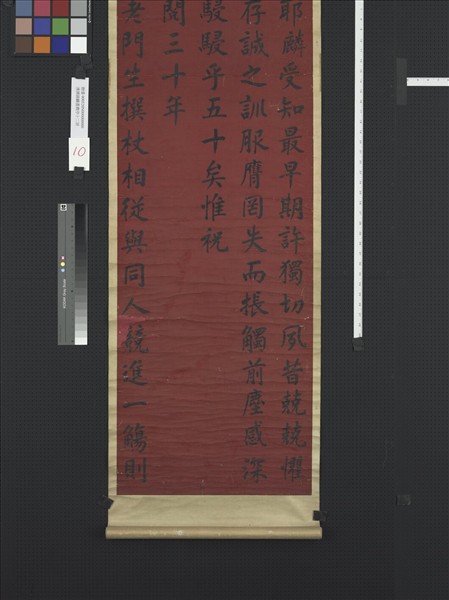 耶麟受知最早期許獨切夙昔兢兢懼
存誠之訓服膺罔失而棖觸前塵感深
駸駸乎五十矣惟祝
閱三十年
老門生撰杖相從與同人競進一觴則
10